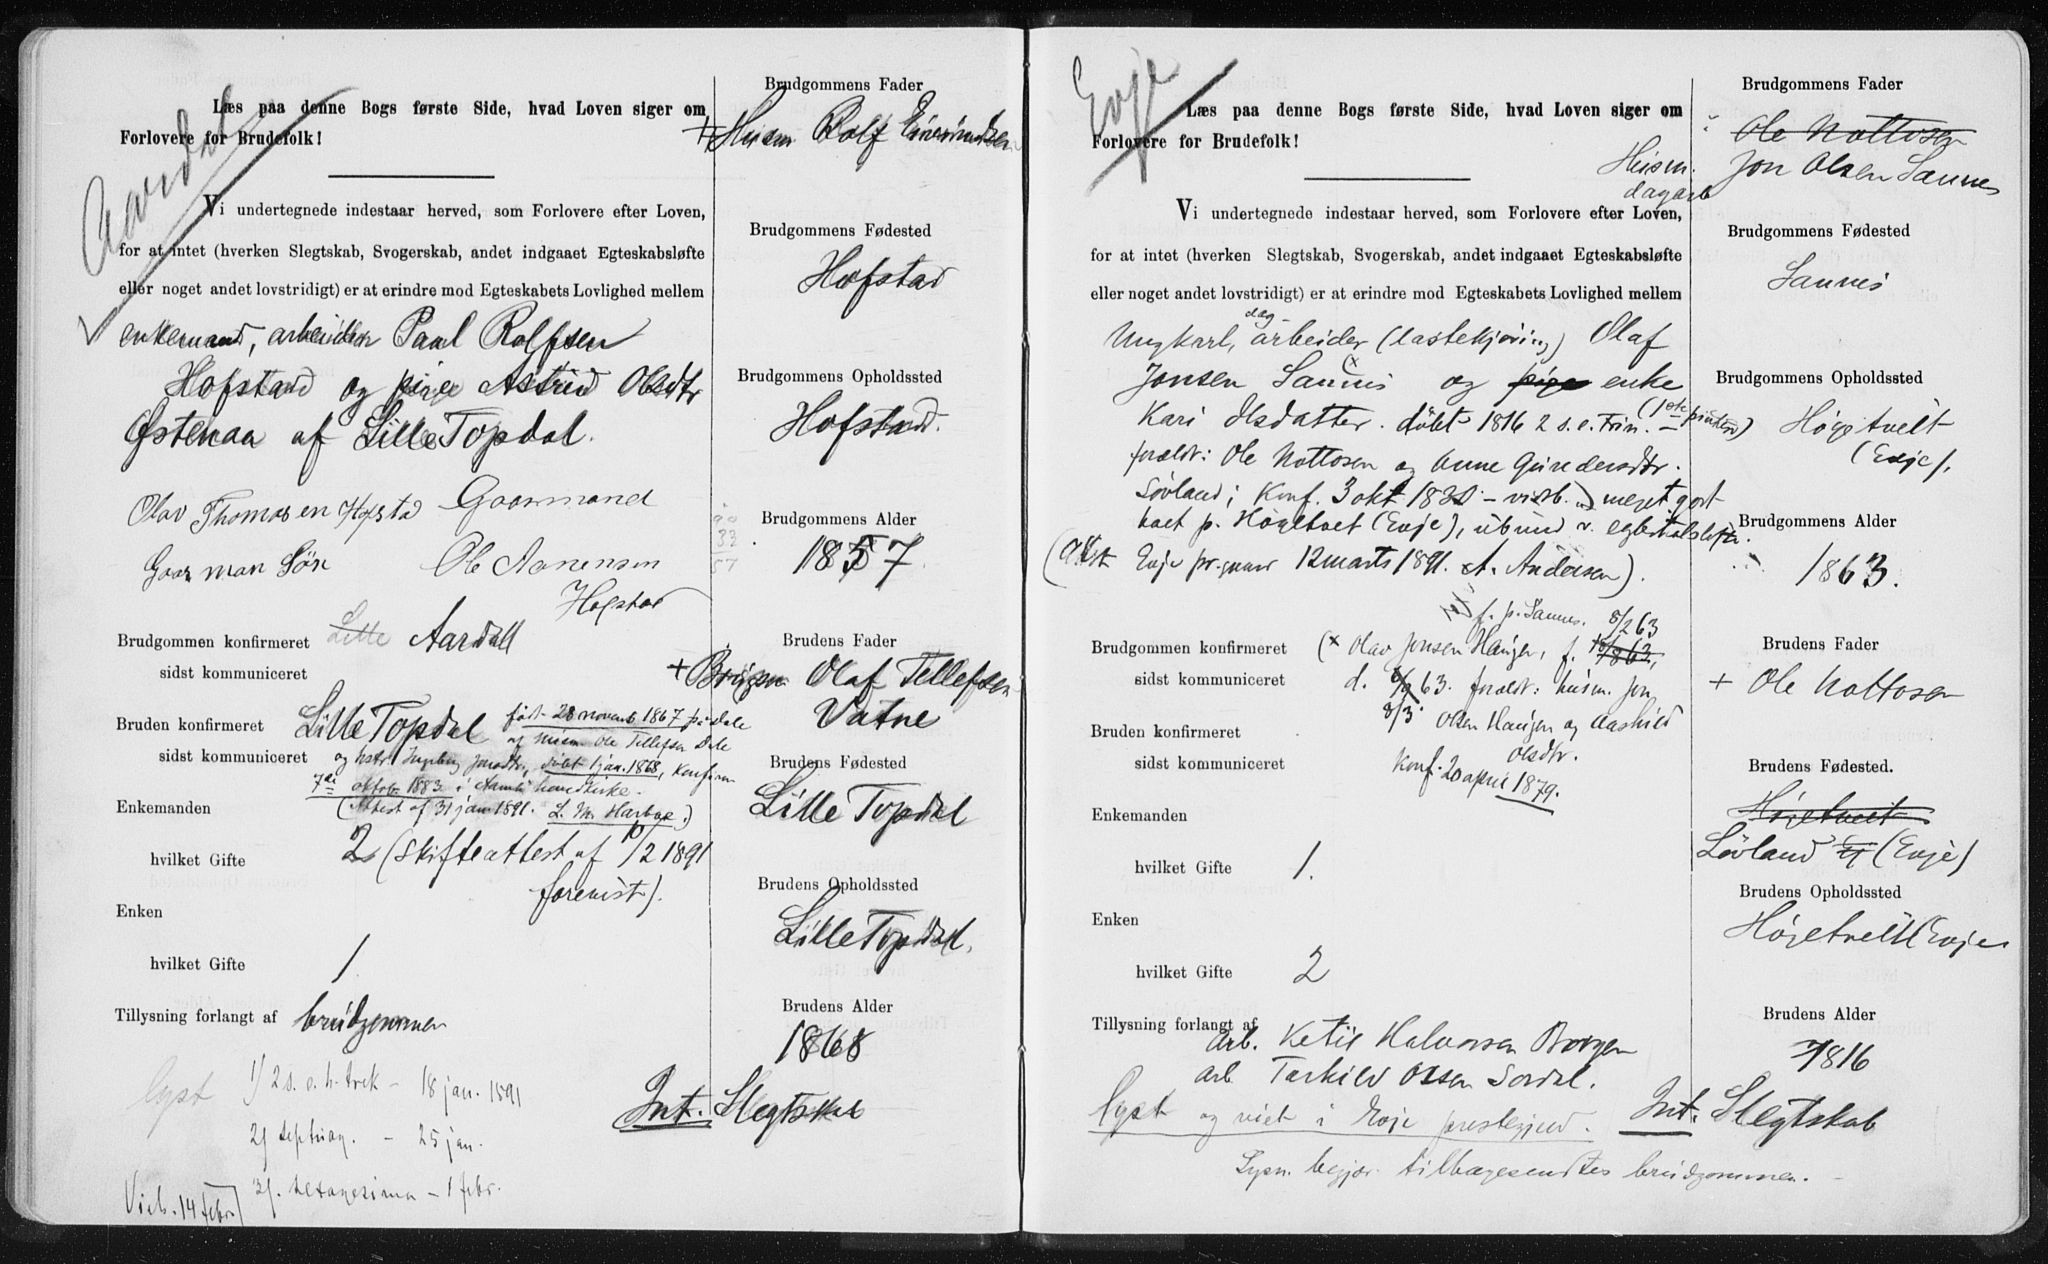 Aardal
Læs paa denne Bogs første Side, hvad Loven siger om
Forlovere for Brudefolk!
Vi undertegnede indestaar herved, som Forlovere efter Loven,
for at intet (hverken Slegtskab, Svogerskab, andet indgaaet Egteskabsløfte
eller noget andet lovstridigt) er at erindre mod Egteskabets Lovlighed mellem
enkemand, arbeider Paul Rolfsen
Hofstad og pige Astrid Olsdtr
Østenaa af Lille Topdal.
Olav Thomassen Hofstad Gaarmand
Gaarman Søn Ole Aanensen
Hofstad
Brudgommen konfirmeret Lille Aardal
sidst kommuniceret
Bruden konfirmeret Lille Topdal født 20 novemb 1867 på dale
sidst kommuniceret af husm. Ole Tellefsen Dale
og hstr Ingeborg Jonsdtr, døbt 1 jan. 1868, konfirm
7de oktob 1883 i Aamli hovedkirke.
Enkemanden (Attest af 31 jan 1891. L. M. Harboe.)
hvilket Gifte 2 (skifteattest af 10/2 1891
forevist).
Enken
hvilket Gifte 1.
Tillysning forlangt af brudgommen
lyst 1/ 2 s. e. h. trek – 18 jan. 1891
2/ septuag. – 25 jan.
3/. sexagesima – 1 febr.
Vieb. 14 febr.
Brudgommens Fader
+ Husm Rolf
Brudgommens Fødested
Hofstad
Brudgommens Opholdssted
Hofstad.
90
33
57
Brudgommens Alder
1857
Brudens Fader
+ Olaf Tellefsen
Vatne
Brudens Fødested
Lille Topdal
Brudens Opholdssted
Lille Topdal.
Brudens Alder
1868
Int. Slegtskab
Evje
Læs paa denne Bogs første Side, hvad Loven siger om
Forlovere for Brudefolk!
Vi undertegnede indestaar herved, som Forlovere efter Loven,
for at intet (hverken Slegtskab, Svogerskab, andet indgaaet Egteskabsløfte
eller noget andet lovstridigt) er at erindre mod Egteskabets Lovlighed mellem
dag-
Ungkarl, arbeider (lastekjøring) Olaf
Jonsen Sannes (x og pige enke
Kari Olsdatter. døbt 1816 2 s. e. Trin. (1ste pintsed)
foreldr: Ole Nottosen og Anne Gundersdtr.
Løvland; Konf. 3 okt 1830 – vidb. meget godt
haet p. Høgetvet (Evje), ubund v. egteskabsløfte.
(Att Evje pr.gaard 12 marts 1891. A. Andersen).
f. p. Sannes. 8/2 63
Brudgommen konfirmeret (x Olav Jonsen Haugen, f. 18/2 63,
sidst kommuniceret d. 63. foreldr: husm. Jon
8/3 Olsen Haugen og Aashild
Bruden konfirmeret Olsdtr.
sidst kommuniceret Konf. 20 april 1879.
Enkemanden
hvilket Gifte 1.
Enken
hvilket Gifte 2
Tillysning forlangt af
Arb. Ketil Halvorsen Borgen
Arb Tarkild Olsen Sordal.
lyst og viet i Evje prestegjeld.
Lysn. begjær. tilbagesendtes brudgommen.
Brudgommens Fader
Ole Nottosen
Husm. Jon Olsen Sannes
dagarb
Brudgommens Fødested
Sannes
Brudgommens Opholdssted
Høgetveit
(Evje).
Brudgommens Alder
1863.
Brudens Fader
+ Ole Nottosen
Brudens Fødested.
Høgetveit
Løvland (Evje)
Brudens Opholdssted
Høgetveit (Evje
Brudens Alder
1816
Int. Slegtskab